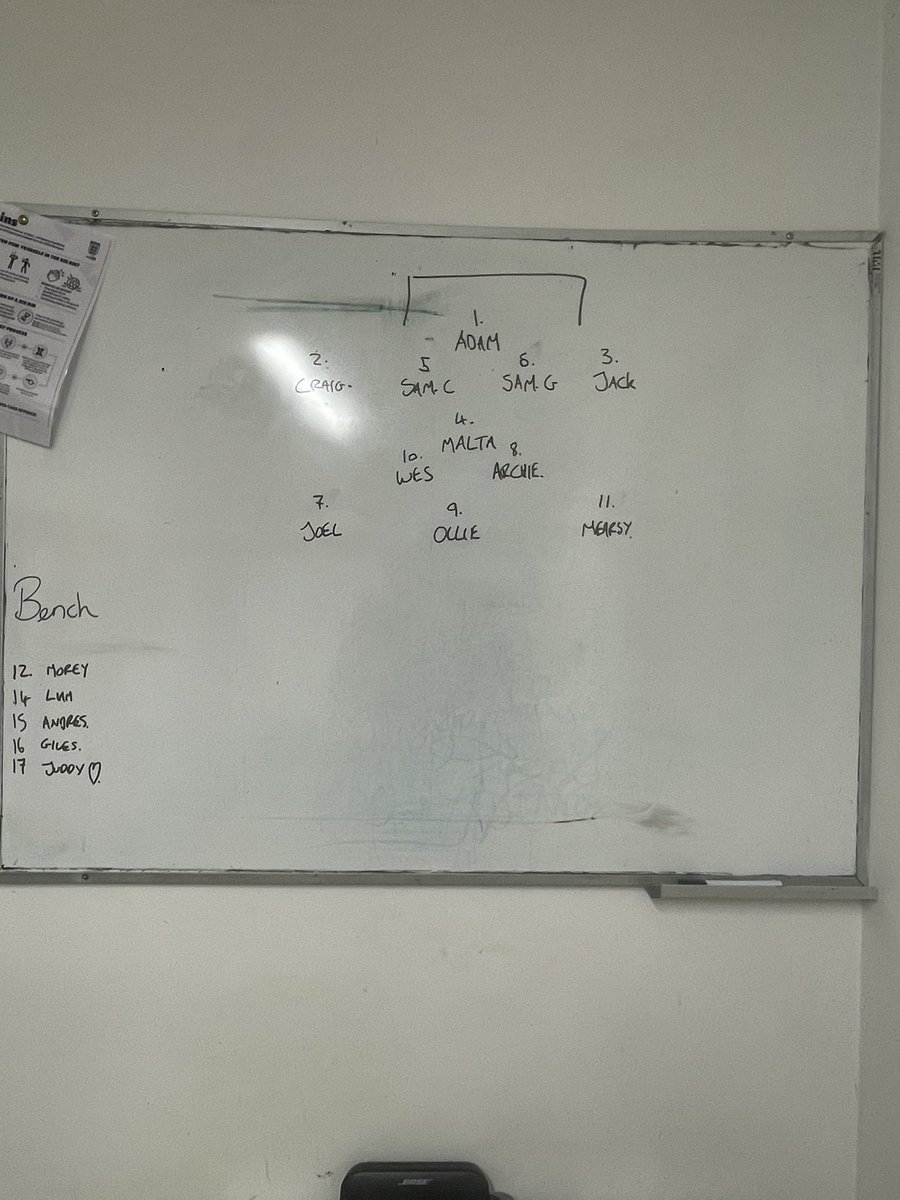 ins
1.
ADAM
2. 5 6. 3.
CRAIG. SAM.C SAM.G JACK
4.
MALTA
10. 8.
WES ARCHIE.
7. 9. 11.
JOEL OLLIE MEARSY.
Bench
12. MOREY
14
15 ANDRES.
16 GILES.
17 JUDDY
BOSE